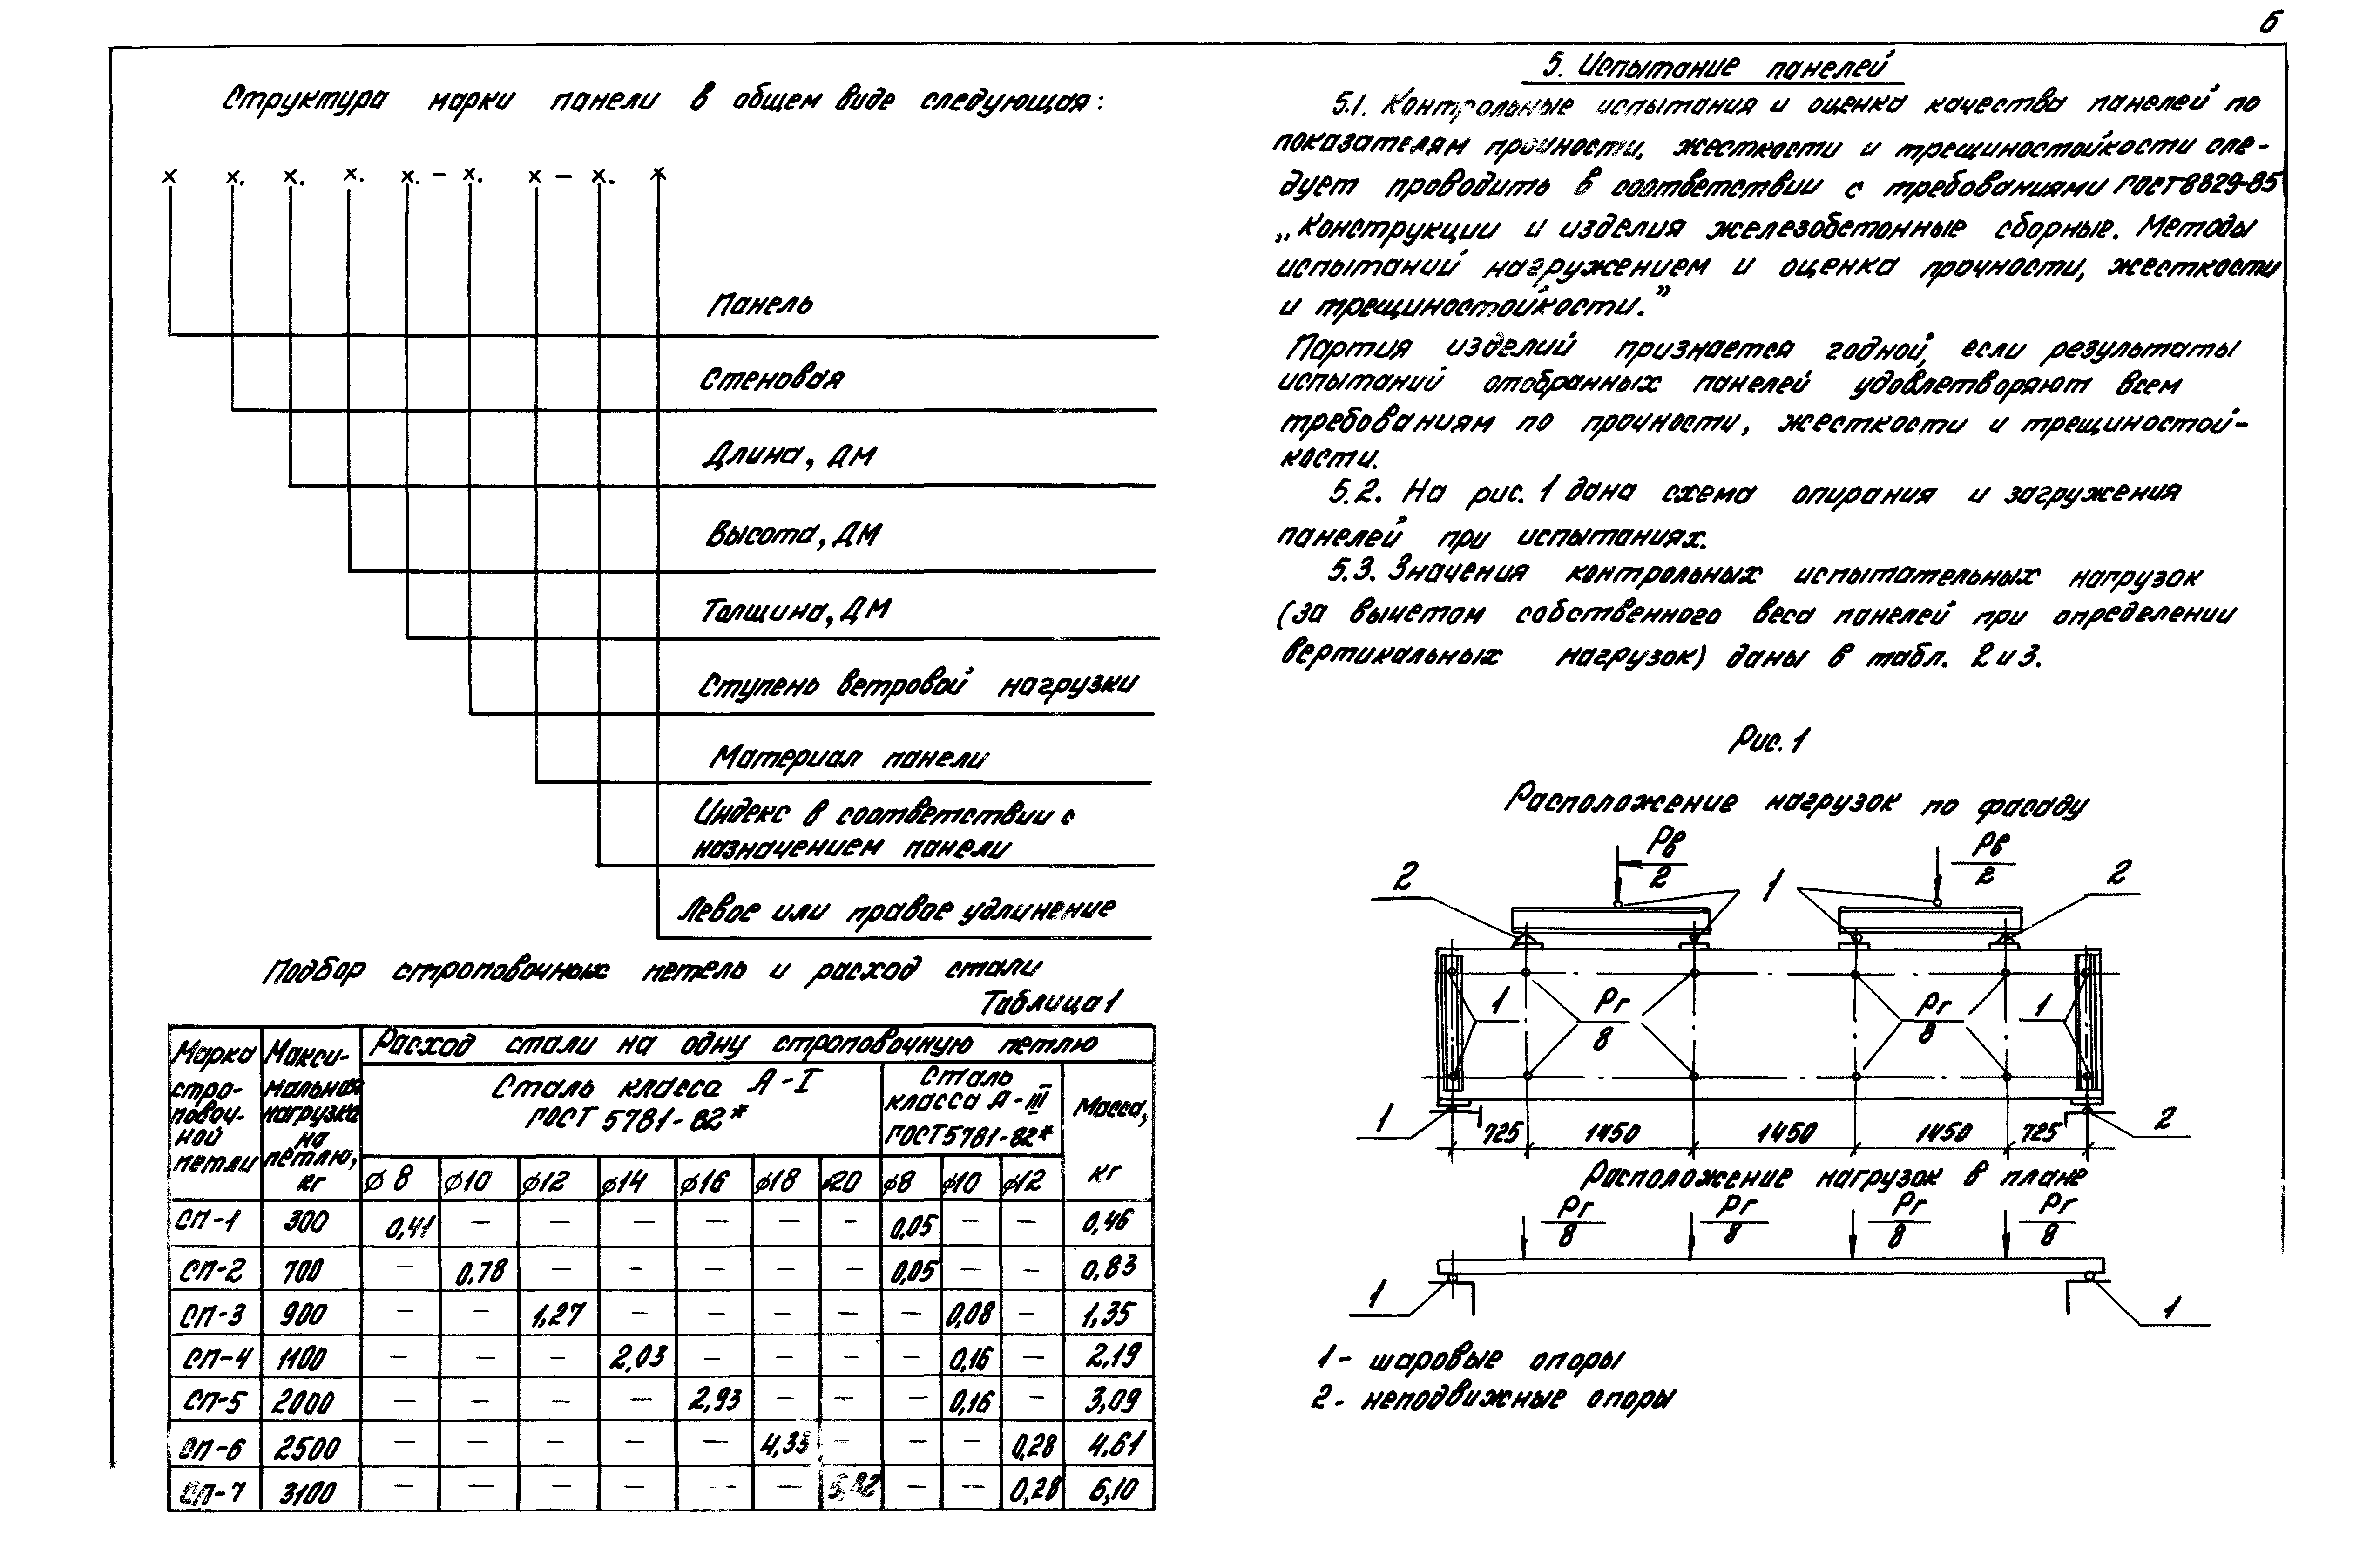 6
Структура марки панели в общем виде следующая:
х х. х. х. х. – х. х – х. х
Панель
Стеновая
Длина, дм
Высота, дм
Толщина, дм
Ступень ветровой нагрузки
Материал панели
Индекс в соответствии с
назначением панели
Левое или правое удлинение
Подбор строповочных петель и расход стали
Таблица 1
Марка строповоч-ной петли | Макси-мальная нагрузка на петлю, кг | Расход стали на одну строповочную петлю
Сталь класса А-I ГОСТ 5781-82* | Сталь класса А-III ГОСТ 5781-82* | Масса, кг
ϕ8 ϕ10 ϕ12 ϕ14 ϕ16 ϕ18 ϕ20 ϕ8 ϕ10 ϕ12
СП-1 300 0,41 – – – – – – 0,05 – – 0,46
СП-2 700 – 0,78 – – – – – 0,05 – – 0,83
СП-3 900 – – 1,27 – – – – – 0,08 – 1,35
СП-4 1100 – – – 2,03 – – – – 0,16 – 2,19
СП-5 2000 – – – – 2,93 – – – 0,16 – 3,09
СП-6 2500 – – – – – 4,33 – – – 0,28 4.61
СП-7 3100 – – – – – – 5,82 – – 0,28 6,10
5. Испытание панелей
5.1. Контрольные испытания и оценка качества панелей по
показателям прочности, жесткости и трещиностойкости сле-
дует проводить в соответствии с требованиями ГОСТ 8829-85
„Конструкции и изделия железобетонные сборные. Методы
испытаний нагружением и оценка прочности, жесткости
и трещиностойкости.”
Партия изделий признается годной, если результаты
испытаний отобранных панелей удовлетворяют всем
требованиям по прочности, жесткости и трещиностой-
кости.
5.2. На рис. 1 дана схема опирания и загружения
панелей при испытаниях.
5.3. Значения контрольных испытательных нагрузок
(за вычетом собственного веса панелей при определении
вертикальных нагрузок) даны в табл. 2 и 3.
Рис. 1
Расположение нагрузок по фасаду
2 Рв/2 1 Рв/2 2
1 Рг/8 Рг/8 1
1 725 1450 1450 1450 725 2
Расположение нагрузок в плане
Рг/8 Рг/8 Рг/8 Рг/8
1 1
1- шаровые опоры
2- неподвижные опоры